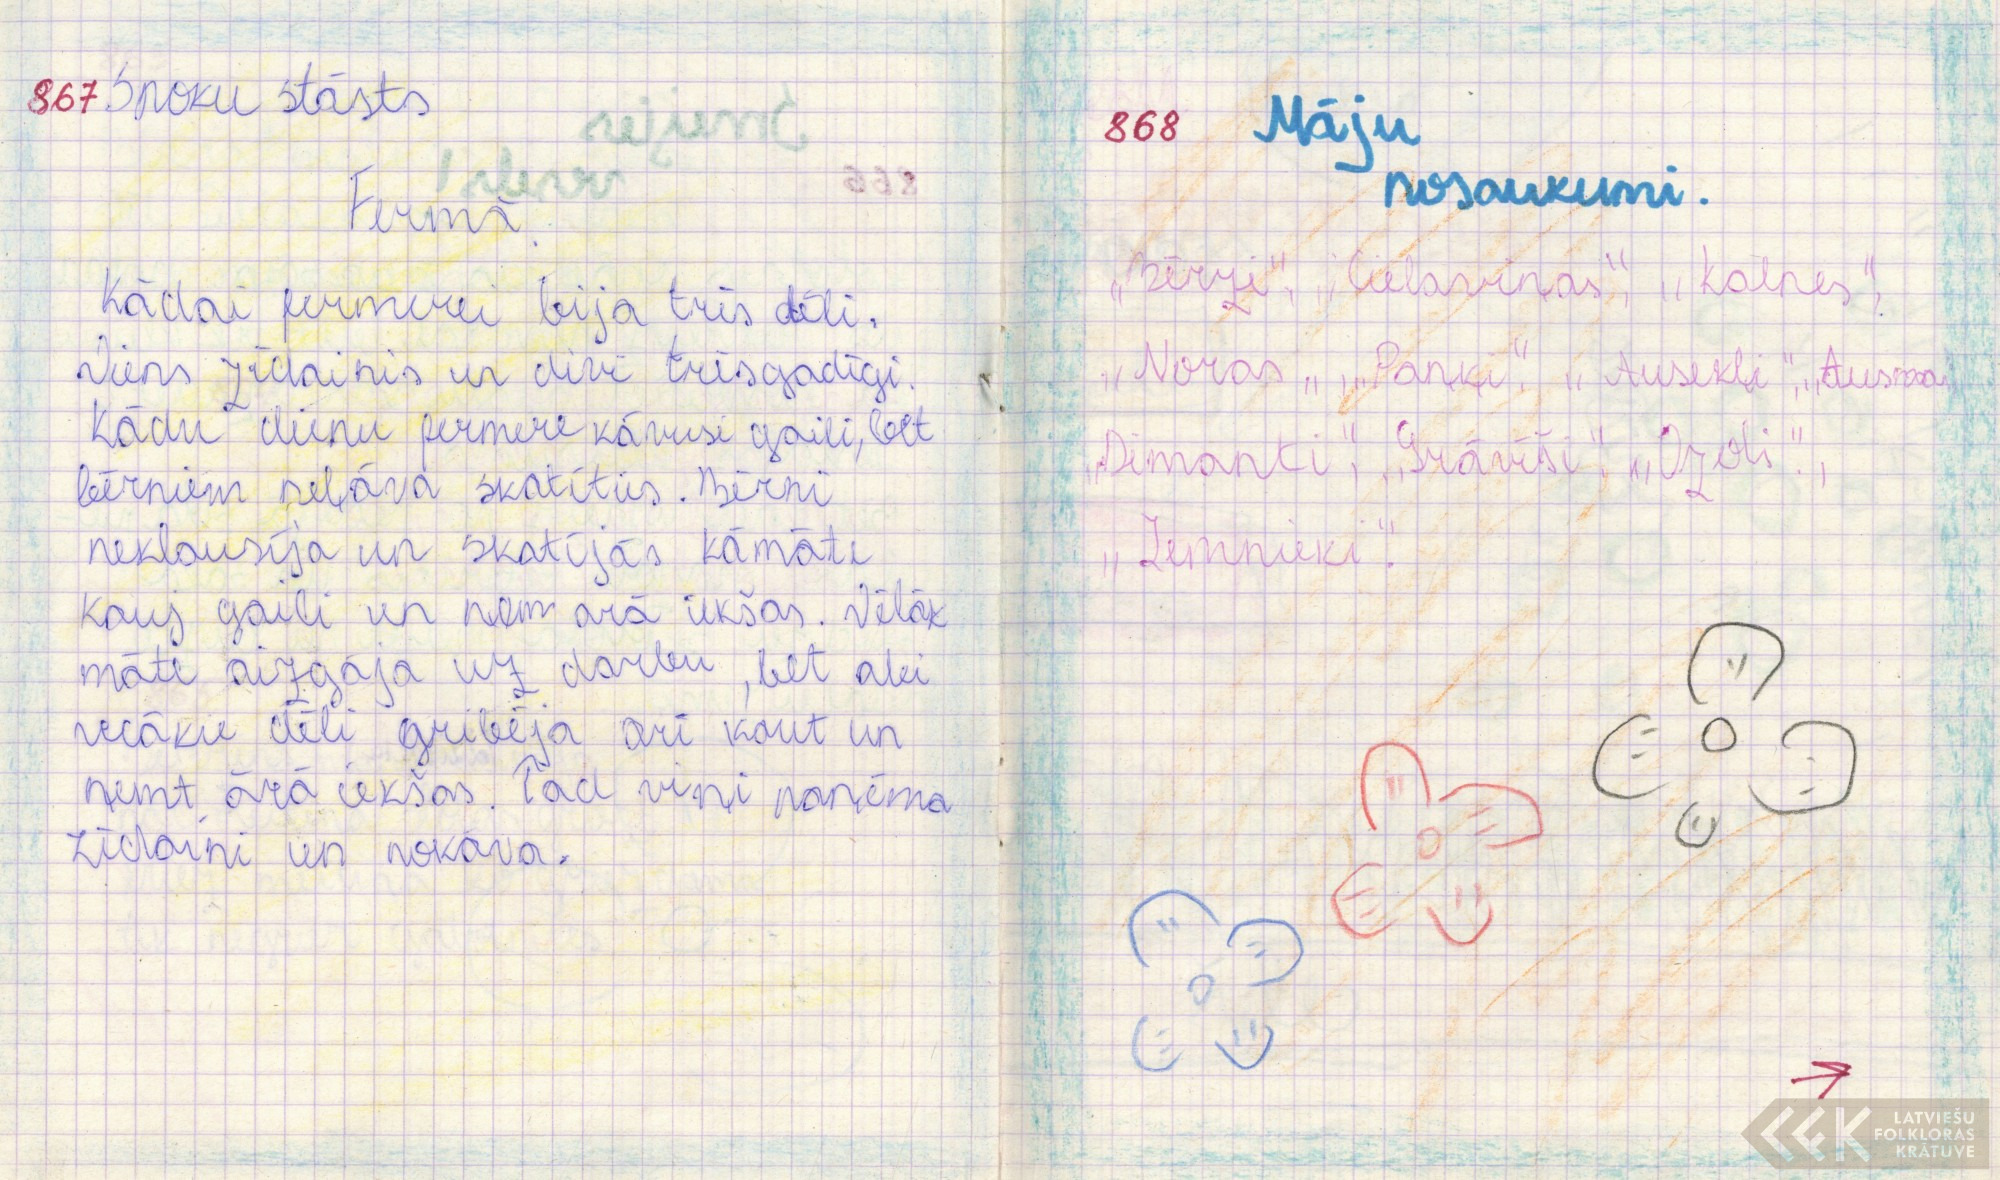 867 Spoku stāsts
Fermā.
Kādai fermerei bija trīs dēli.
Viens zīdainis un divi trīsgadīgi.
Kādu dienu fermere kāvusi gaili, bet
bērniem neļāva skatītiēs. Bērni
neklausīja un skatījās kāmāte
kauj gaili un ņem arā iekšas. Vēlāk
māte aizgāja uz darbu, bet abi
vecākie dēli gribēja arī kaut un
ņemt ārā iekšas. Tad viņi paņēma
zīdaini un nokāva.
868 Māju
nosaukumi.
„Bērzi", „Cielaviņas", „Kalnes",
„Noras„, „Panķi". „Ausekļi", „Ausmas
„Dimanti", „Grāvīši", „Ozoli",
„Zemnieki".
LATVIEŠU
FOLKLORAS
KRĀTUVE